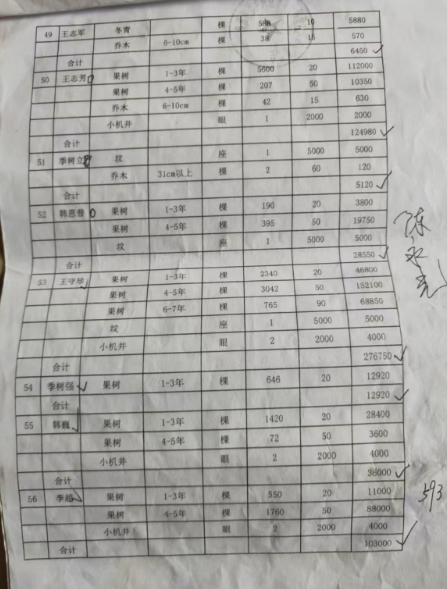 49 王志军 冬青 棵 588 10 5880
乔木 6-10cm 棵 38 15 570
合计 6450
50 王志芳 果树 1-3年 棵 5600 20 112000
果树 4-5年 棵 207 50 10350
乔木 6-10cm 棵 42 15 630
小机井 眼 1 2000 2000
合计 124980
51 季树立 坟 座 1 5000 5000
乔木 31cm以上 棵 2 60 120
合计 5120
52 韩恩普 果树 1-3年 棵 190 20 3800
果树 4-5年 棵 395 50 19750
坟 座 1 5000 5000
合计 28550
53 王守 果树 1-3年 棵 2340 20 46800
果树 4-5年 棵 3042 50 152100
果树 6-7年 棵 765 90 68850
坟 座 1 5000 5000
小机井 眼 2 2000 4000
合计 276750
54 季树强 果树 1-3年 棵 646 20 12920
合计 12920
55 韩巍 果树 1-3年 棵 1420 20 28400
果树 4-5年 棵 72 50 3600
小机井 眼 2 2000 4000
合计 36000
56 季超 果树 1-3年 棵 550 20 11000
果树 4-5年 棵 1760 50 88000
小机井 眼 2 2000 4000
合计 103000
陈永亮
593